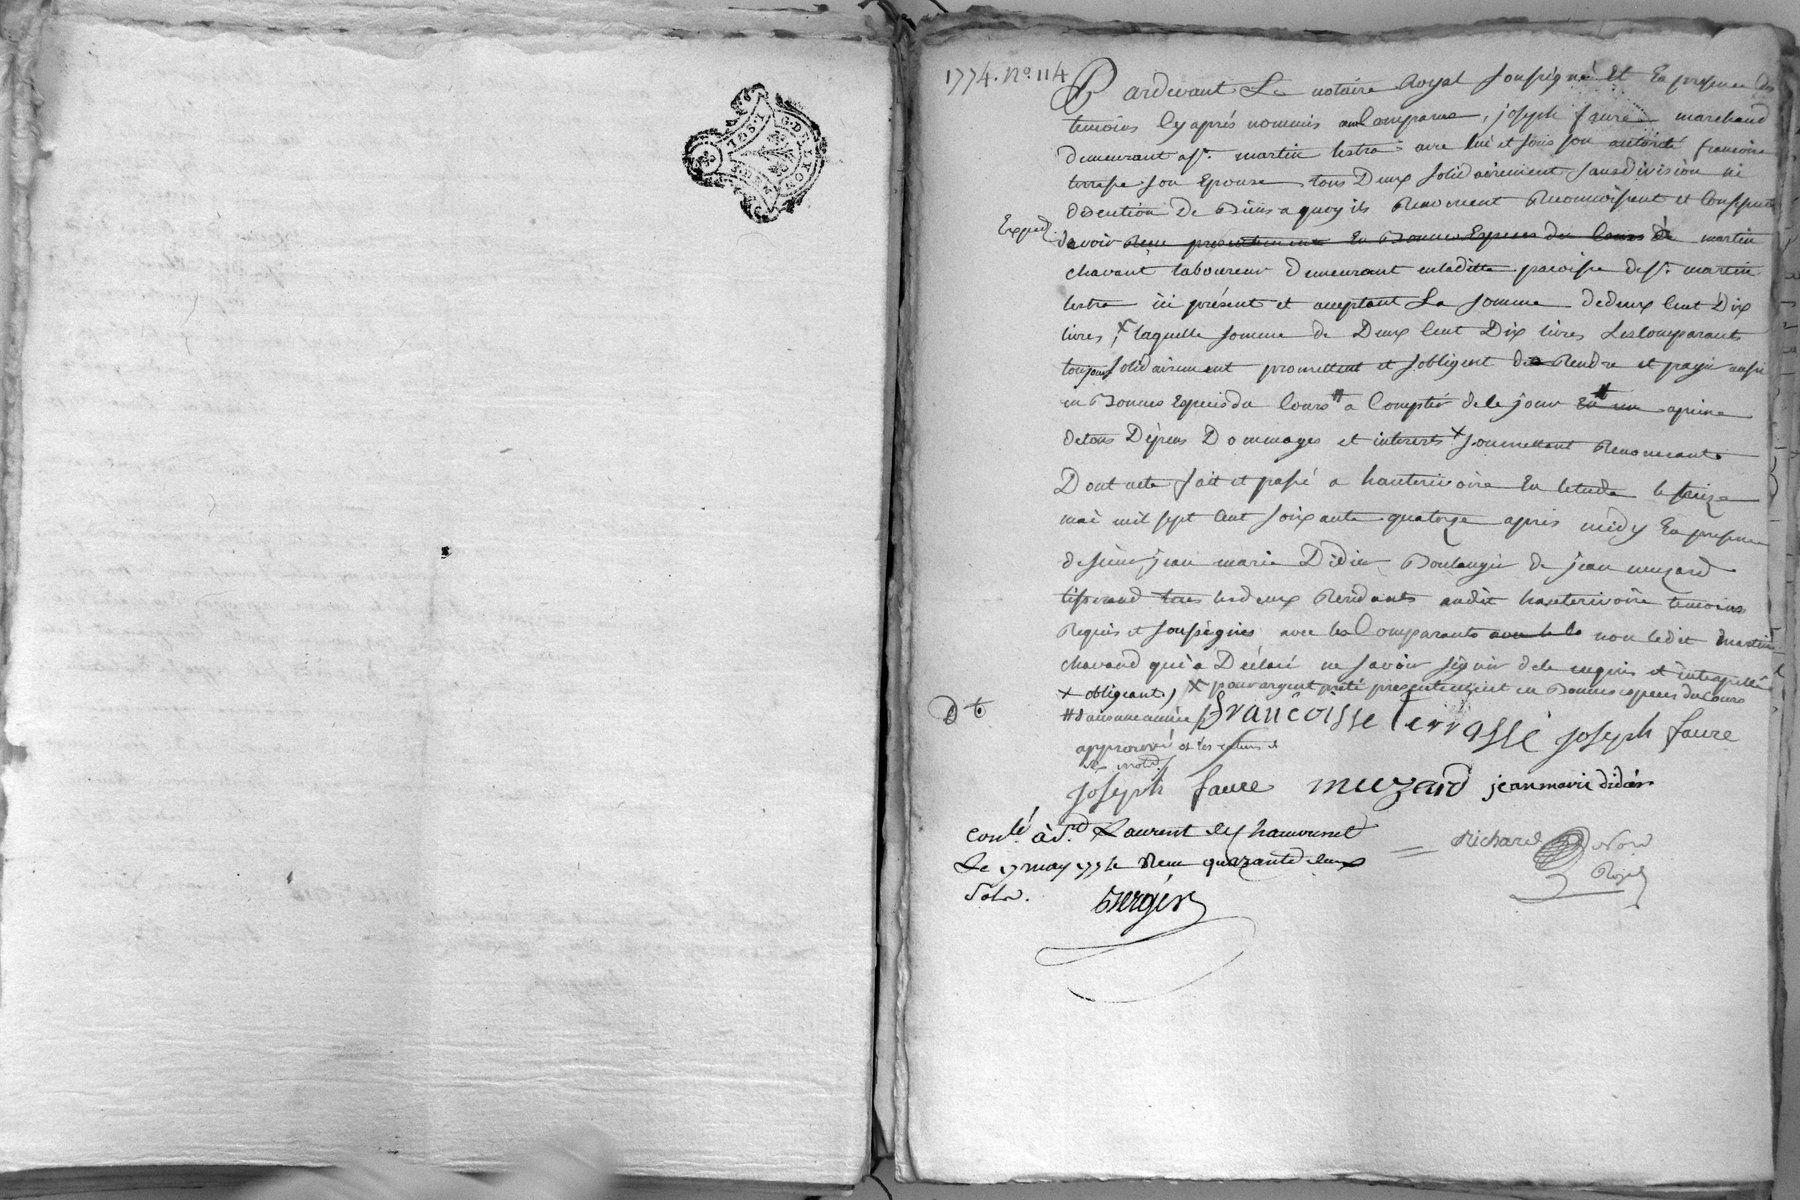 G. DE LYON
1774. No. 114
Pardevant Le notaire Royal soussigné Et En presence Des
temoins Cy aprés nommés Comparu, joseph faure marchand
demeurant a st. martin lestra avec lui et sous son autorité francoise
terrasse son Epouse tous Deux solidairement sans division ni
discution De Biens a quoy ils Renoncent Reconnoissent et Confessent
Exped.
devoir Reçu presentement En Bonnes Especes du Cours de martin
chavant laboureur demeurant en laditte paroisse de st. martin
lestra ici présent et acceptant La somme de deux Cent Dix
livres, x laquelle somme de Deux Cent Dix livres Les Comparants
toujours solidairement promettent et s'obligent de Rendre et payer aussi
en Bonnes Especes du Cours # a Compter de Ce jour # a peine
de tous Dépens Dommages et interests x soumettant Renoncant
Dont acte fait et passé a hauterivoire En letude le seize
mai mil sept Cent soixante quatorze apres midy En presence
de sieur jean marie Didier Boulanger & jean muzard
tisserand les deux Residants audit hauterivoire temoins
Requis et soussignés avec les Comparants non ledit martin
chavand qui a Déclaré ne savoir signer de Ce enquis et interpellé
x obligeant, x pour argent preté presentement en Bonnes especes du Cours
# dans une année
D t
francoisse terrasse joseph faure
approuvé
joseph faure muzard jean marie didier
conlé. à St. Laurent de Chamousset
Le 17 may 1774 Reçu quarante deux
sols.
Bergér
Richard Nore
Royal